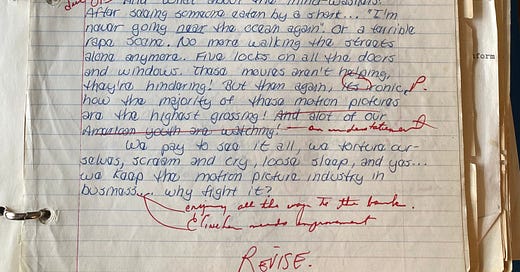 And what about the mind-washers?
After seeing someone eaten by a shark... "I'm
never going near the ocean again". Or a terrible
rape scene. No more walking the streets
alone anymore. Five locks on all the doors
and windows. These movies aren't helping,
they're hindering! But then again, its ironic, P.
how the majority of these motion pictures
are the highest grossing! And alot of our
American youth are watching! an understatement
We pay to see it all, we torture our-
selves, scream and cry, loose sleep, and yes...
we keep the motion picture industry in
business... why fight it?
crying all the way to the bank.
Clincher needs improvement
REVISE.
form